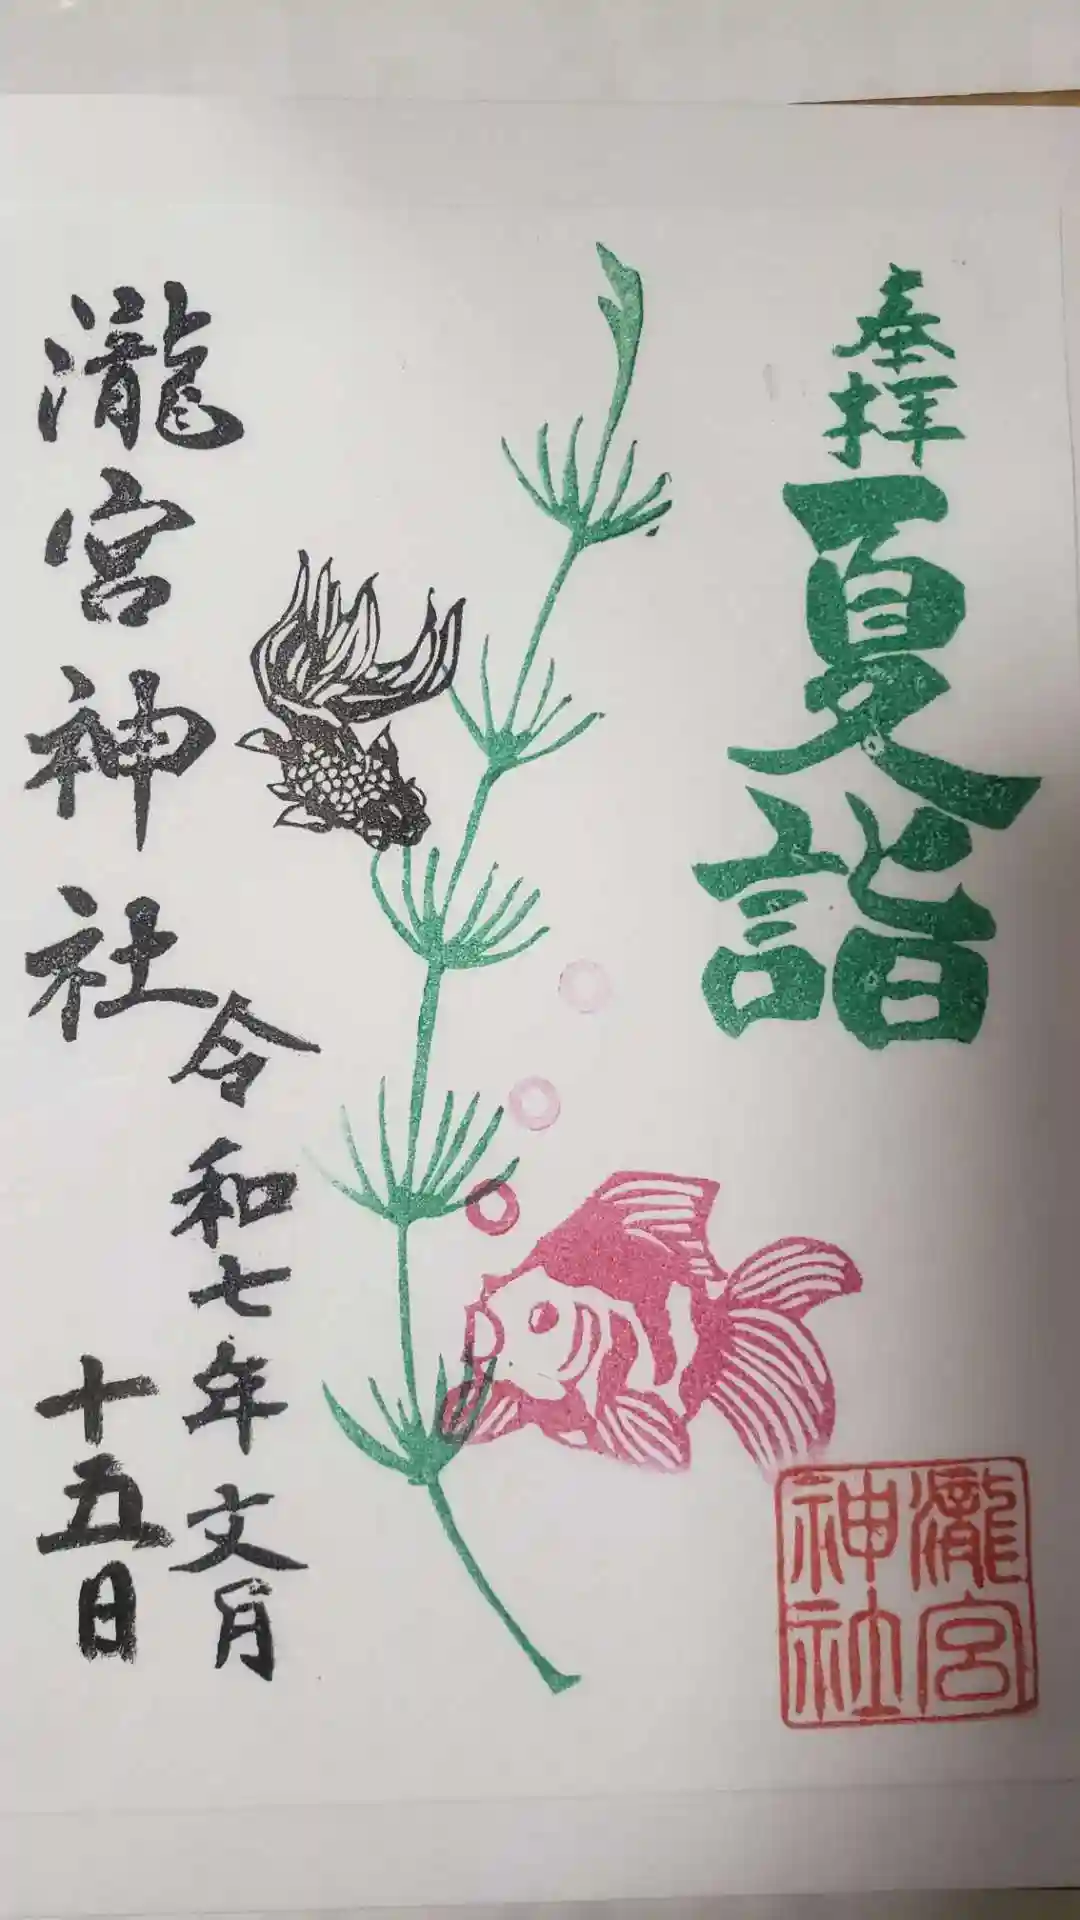 奉拝
夏詣
瀧宮
神社
令和七年文月
十五日
瀧宮神社